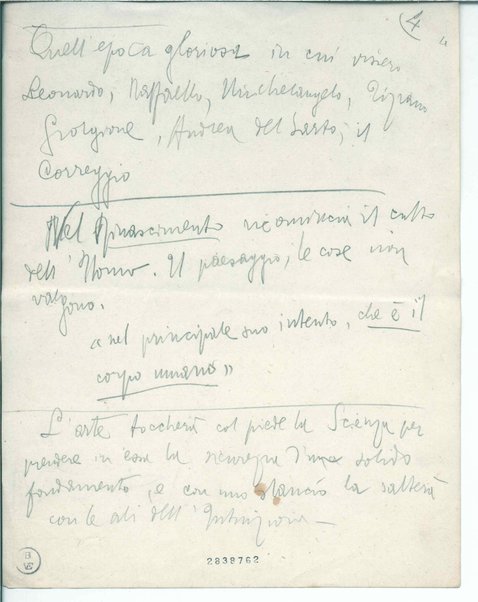 4
Quell'epoca gloriosa in cui vissero
Leonardo, Raffaello, Michelangelo, Tiziano
Giorgione, Andrea del Sarto, il
Correggio
Nel Rinascimento ricomincia il culto
dell'Uomo. Il paesaggio, le cose non
valgono.
« nel principale suo intento, che è il
corpo umano »
L'arte toccherà col piede la Scienza per
prendere in essa la sicurezza d'un solido
fondamento, e con uno slancio la salterà
con le ali dell'Intuizione —
2838762